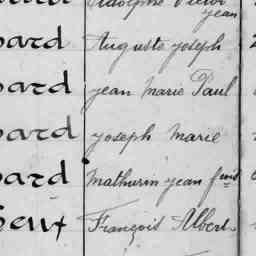 Adolphe Victor
jean
ard Auguste joseph
ard jean Marie Paul
ard joseph Marie
ard Mathurin jean fois
François Albert